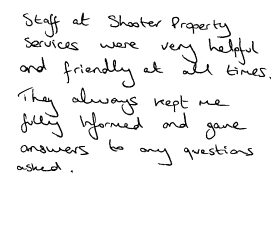 Staff at Shooter Property
Services were very helpful
and friendly at all times.
They always kept me
fully informed and gave
answers to any questions
asked.